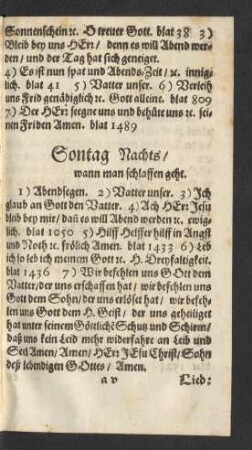 Sonnenschein ꝛc. O treuer Gott. blat 38 3)
Bleib bey uns HErr / denn es will Abend wer-
den / und der Tag hat sich geneiget.
4) Es ist nun spat und Abends-Zeit / ꝛc. innig-
lich. blat 41 5) Vatter unser. 6) Verleih
uns Frid genådiglich ꝛc. Gott alleine. blat 809
7) Der HErr seegne uns und behüte uns ꝛc. sei-
nen Friden Amen. blat 1489
Sontag Nachts /
wann man schlaffen geht.
1) Abendsegen. 2) Vatter unser. 3) Ich
glaub an Gott den Vatter. 4) Ach HErr Jesu
bleib bey mir / dañ es will Abend werden ꝛc. ewig-
lich. blat 1050 5) Hilff Helffer hilff in Angst
und Noth ꝛc. frölich Amen. blat 1433 6) Leb
ich so leb ich meinem Gott ꝛc. H. Dreyfaltigkeit.
blat 1436 7) Wir befehlen uns GOtt dem
Vatter / der uns erschaffen hat / wir befehlen uns
Gott dem Sohn / der uns erlöset hat / wir befeh-
len uns Gott dem H. Geist / der uns geheiliget
hat unter seinem Göttlichẽ Schutz und Schirm /
daß uns kein Leid mehr widerfahre an Leib und
Seel Amen / Amen / HErr JEsu Christ / Sohn
deß lebendigen GOttes / Amen.
a v Lied: